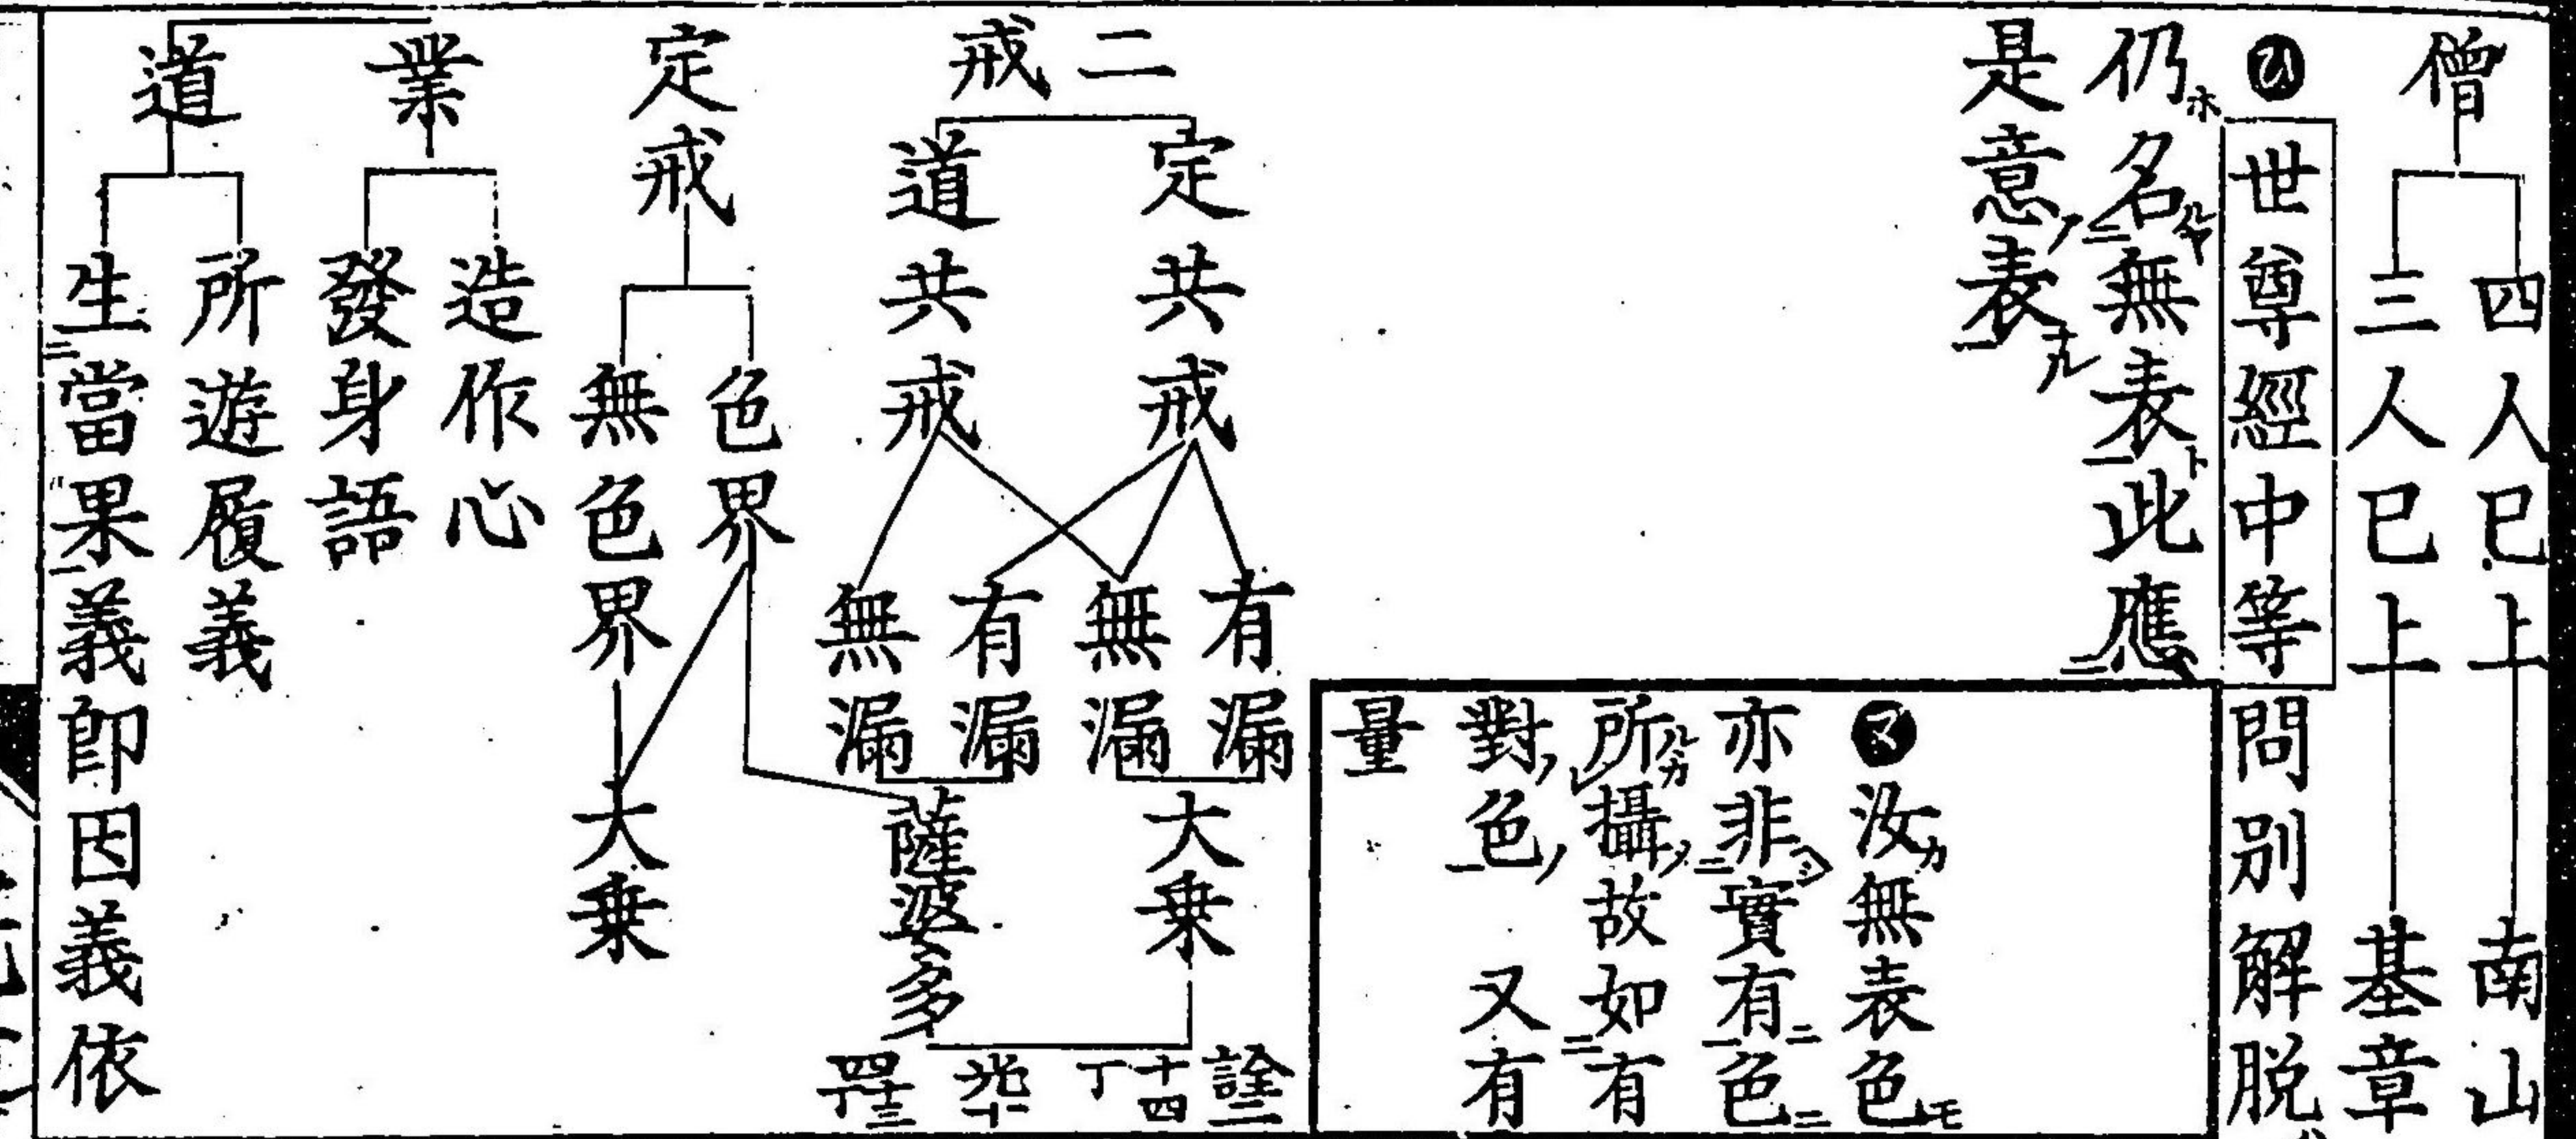 僧
四人已上 南山
三人已上 基章
世尊經中等 問別解脱
仍名無表此應
是意表
汝無表色
亦非實有色
所攝故如有
對色 又有
量
二戒
定共戒
道共戒
有漏
無漏
有漏
無漏
大乗
薩婆多
詮二
十四丁
定戒
色界
無色界
大乗
業
造作心
發身語
道
所遊履義
生當果義即因義依